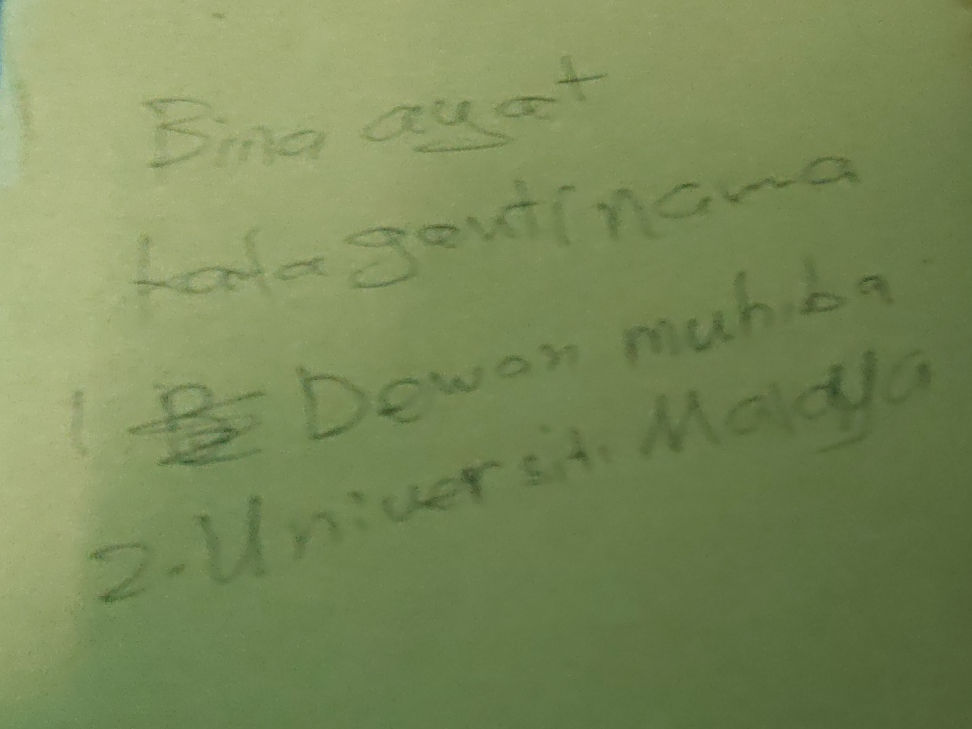 Bina ayat
kata ganti nama
1 Dewan muhiba
2. Universiti Malaya